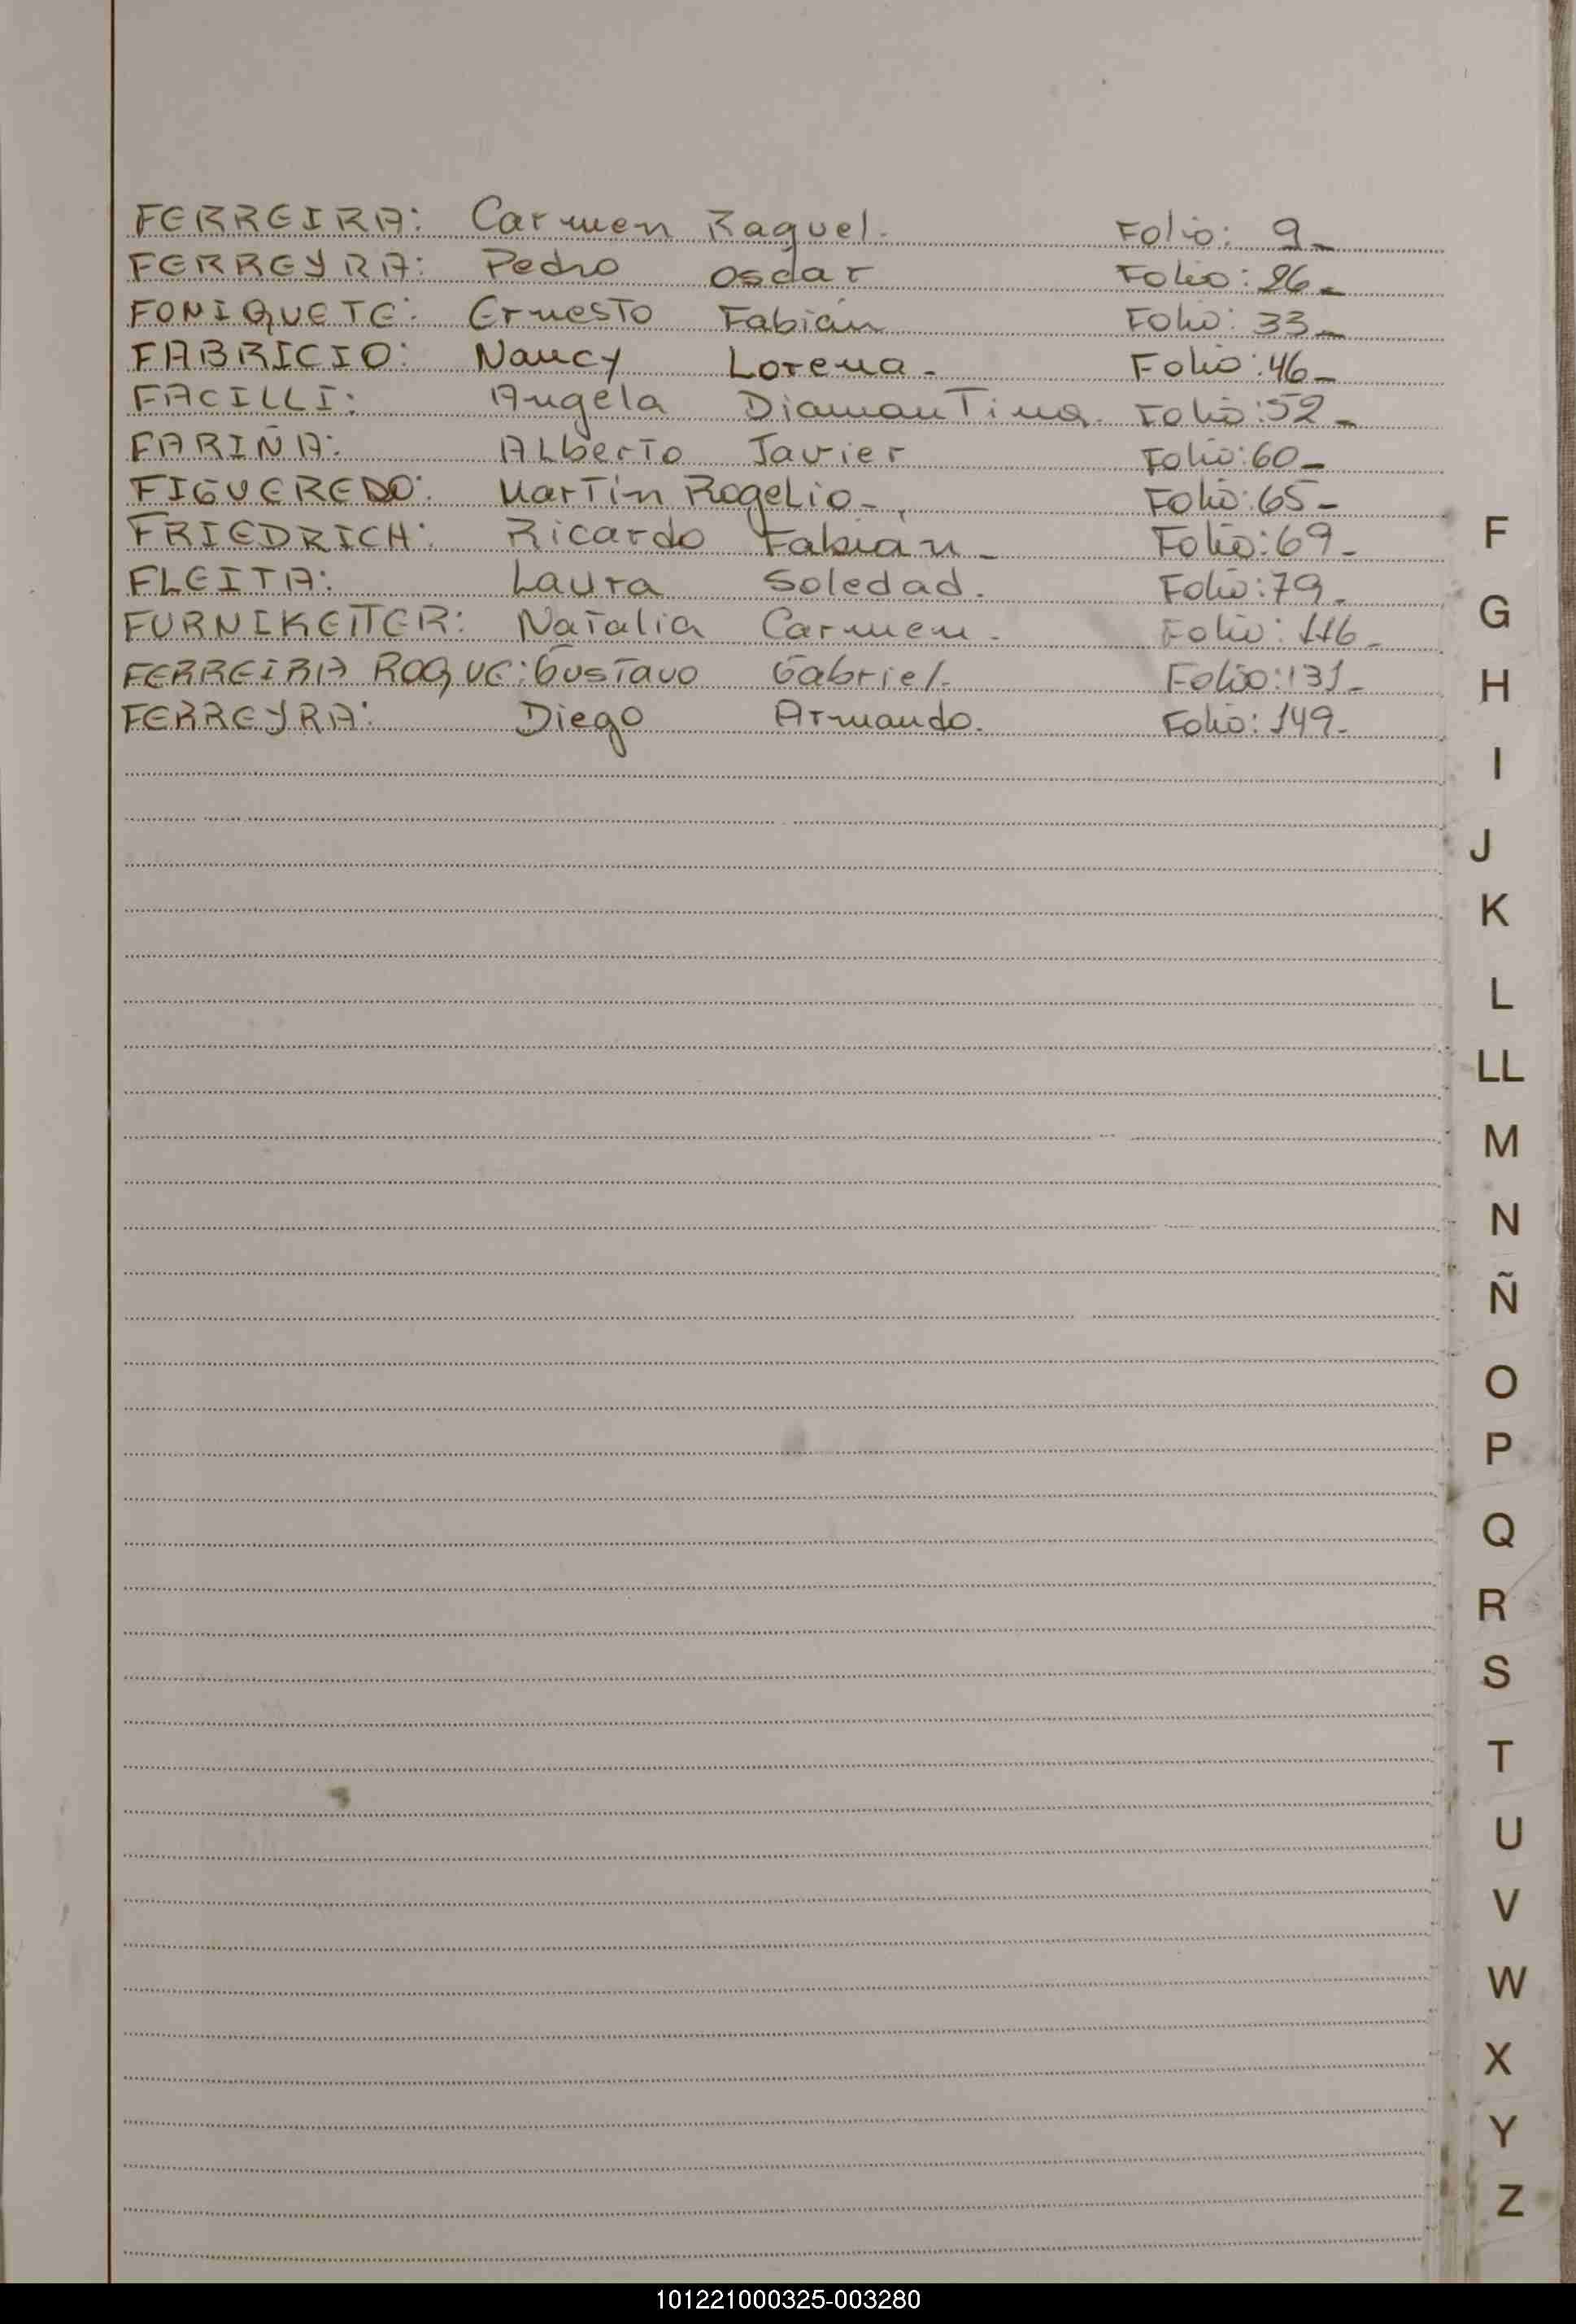 FERREIRA: Carmen Raquel. Folio: 9-
FERREYRA: Pedro Oscar Folio: 26-
FONIQUETE: Ernesto Fabián Folio: 33-
FABRICIO: Nancy Lorena. Folio: 46-
FACILLI: Angela Diamantina. Folio: 52-
FARIÑA: Alberto Javier Folio: 60-
FIGUEREDO: Martín Rogelio-. Folio: 65-
FRIEDRICH: Ricardo Fabián- Folio: 69-
FLEITA: Laura Soledad. Folio: 79-
FURNIKETTER: Natalia Carmen. Folio: 116-
FERREIRA ROQUE: Gustavo Gabriel. Folio: 131-
FERREYRA: Diego Armando. Folio: 149-
F
G
H
I
J
K
L
LL
M
N
Ñ
O
P
Q
R
S
T
U
V
W
X
Y
Z
101221000325-003280